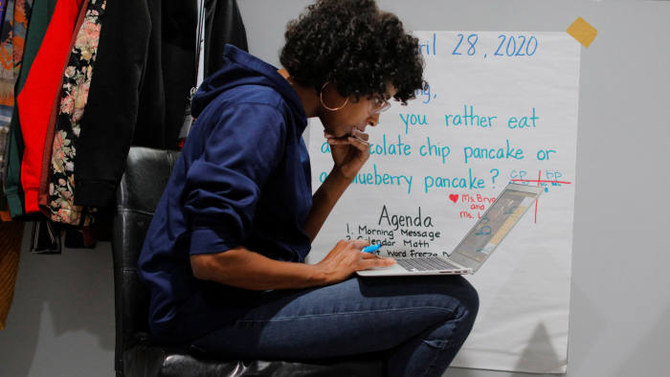 ril 28, 2020
ng,
you rather eat
a ocolate chip pancake or
a lueberry pancake? cp bp
♥ Ms. Brya
and
Ms. L
Agenda
1. Morning Message
Calendar Math
Word Freeze